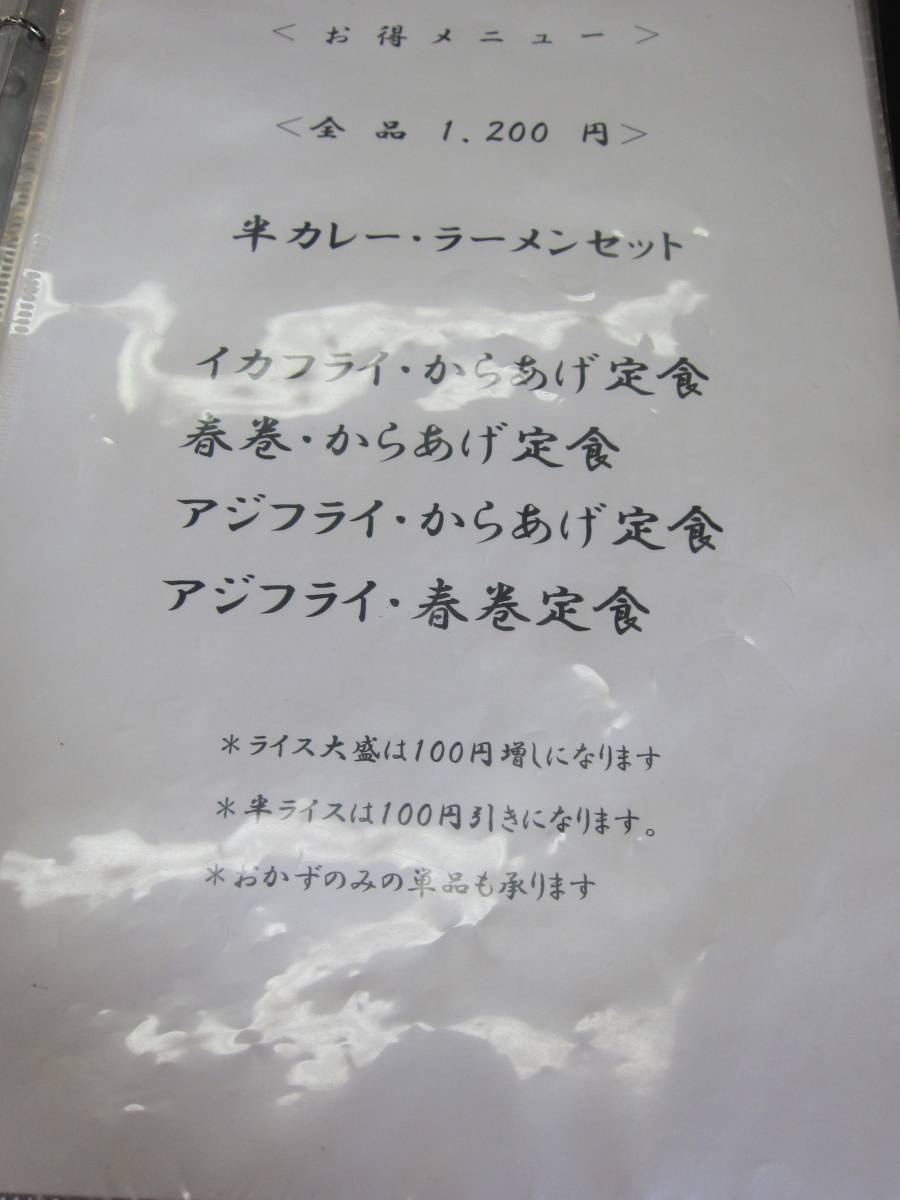 ＜お得メニュー＞
＜全品 1,200 円＞
半カレー・ラーメンセット
イカフライ・からあげ定食
春巻・からあげ定食
アジフライ・からあげ定食
アジフライ・春巻定食
＊ライス大盛は100円増しになります
＊半ライスは100円引きになります。
＊おかずのみの単品も承ります